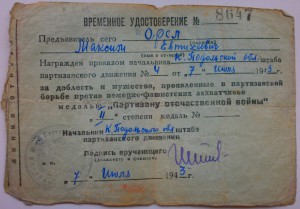 ВРЕМЕННОЕ УДОСТОВЕРЕНИЕ № 8647
Предъявитель сего Орел
Максим Евтихиевич
Награжден приказом начальника К. Подольской обл. штаба
партизанского движения № 4 от 7 Июля 1943 г.
за доблесть и мужество, проявленные в партизанской
борьбе против немецко-фашистских захватчиков
медалью "Партизану отечественной войны"
"II" степени медаль №
Начальник К. Подольского обл штаба
партизанского движения
Подпись вручающего
"7" Июля 1943 г.